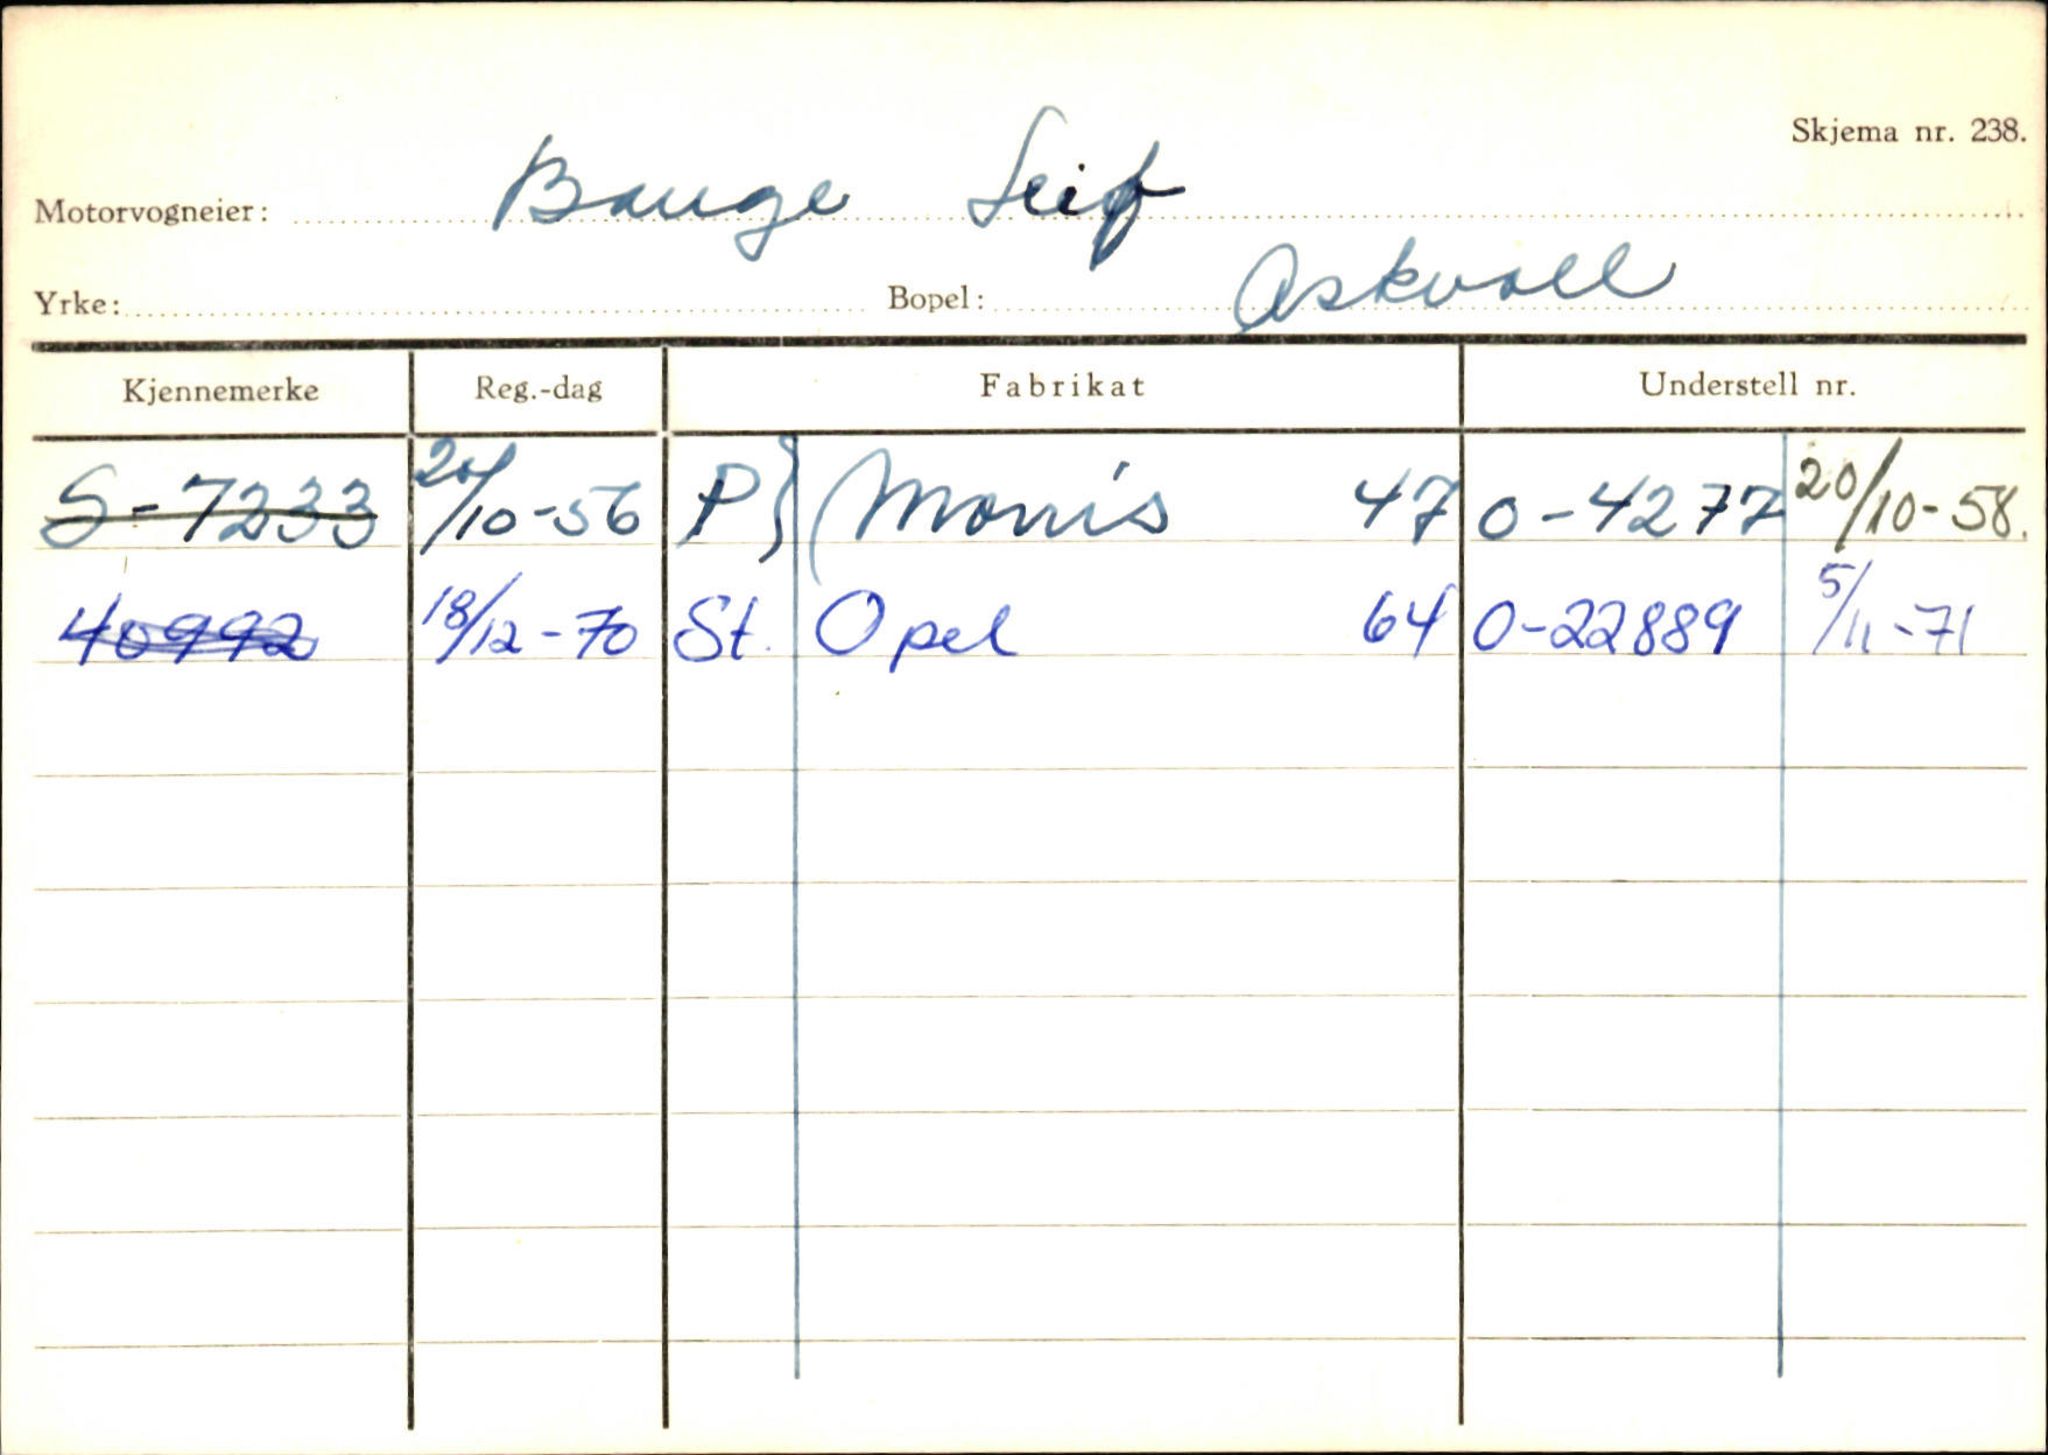 Skjema nr. 238.
Motorvogneier: Bauge Leif
Yrke: Bopel: Askvoll
Kjennemerke Reg.-dag Fabrikat Understell nr.
S-7233 20/10-56 P Morris 47 0-4277 20/10-58.
40992 18/12-70 St. Opel 64 0-22889 5/11-71